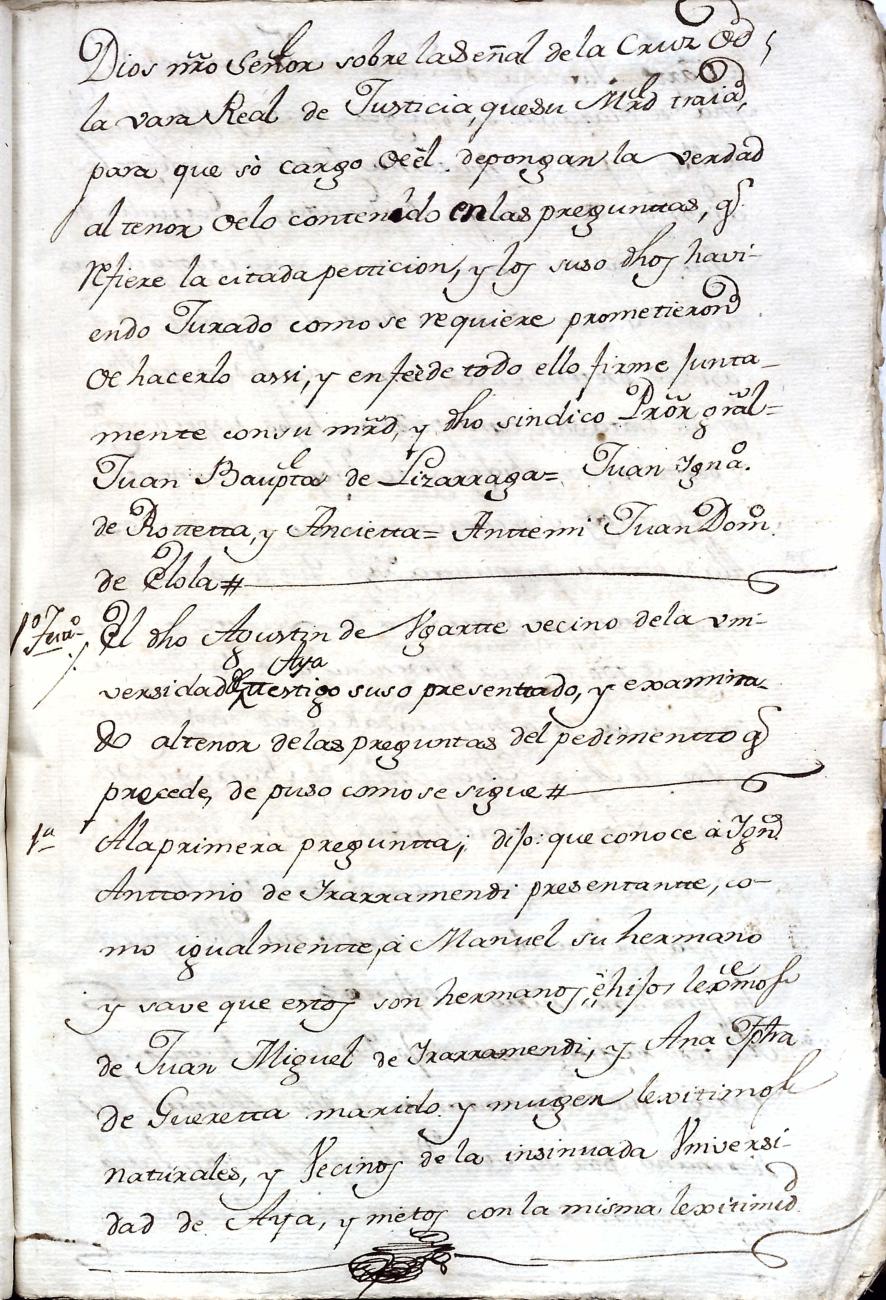 Dios nr̃o Señor sobre la Señal de la Cruz de
la vara Real de Justicia, que su Mrd traia,
para que sò cargo de èl depongan la verdad
al tenor de lo contenido en las preguntas, q̃
refiere la citada petticion, y los suso dhos havi-
endo Jurado como se requiere prometieron
de hacerlo assi, y en feè de todo ello firme Junta-
mente con su mrd, y dho sindico Pror gral=
Juan Baupta de Lizarraga= Juan Igna.
de Rottetta, y Ancietta= Anttemi Juan Dom.
de Elola#
1º Ttigo El dho Agustin de Ygartte vecino de la Vni-
Aya
versidad de ttestigo suso presenttado, y examina-
do al tenor de las preguntas del pedimentto q̃
precede, de puso como se sigue#
1a A la primera preguntta; dijo: que conoce à Ignº
Anttonio de Irarramendi presentantte, co-
mo igualmentte, à Manuel su hermano
y save que estos son hermanos, è hijos lexmos
de Juan Miguel de Irarramendi, y Ana Jpha
de Gueretta marido y muger lexitimos
naturales, y Vecinos de la insinuada Vniversi-
dad de Aya, y nietos con la misma lexitimid